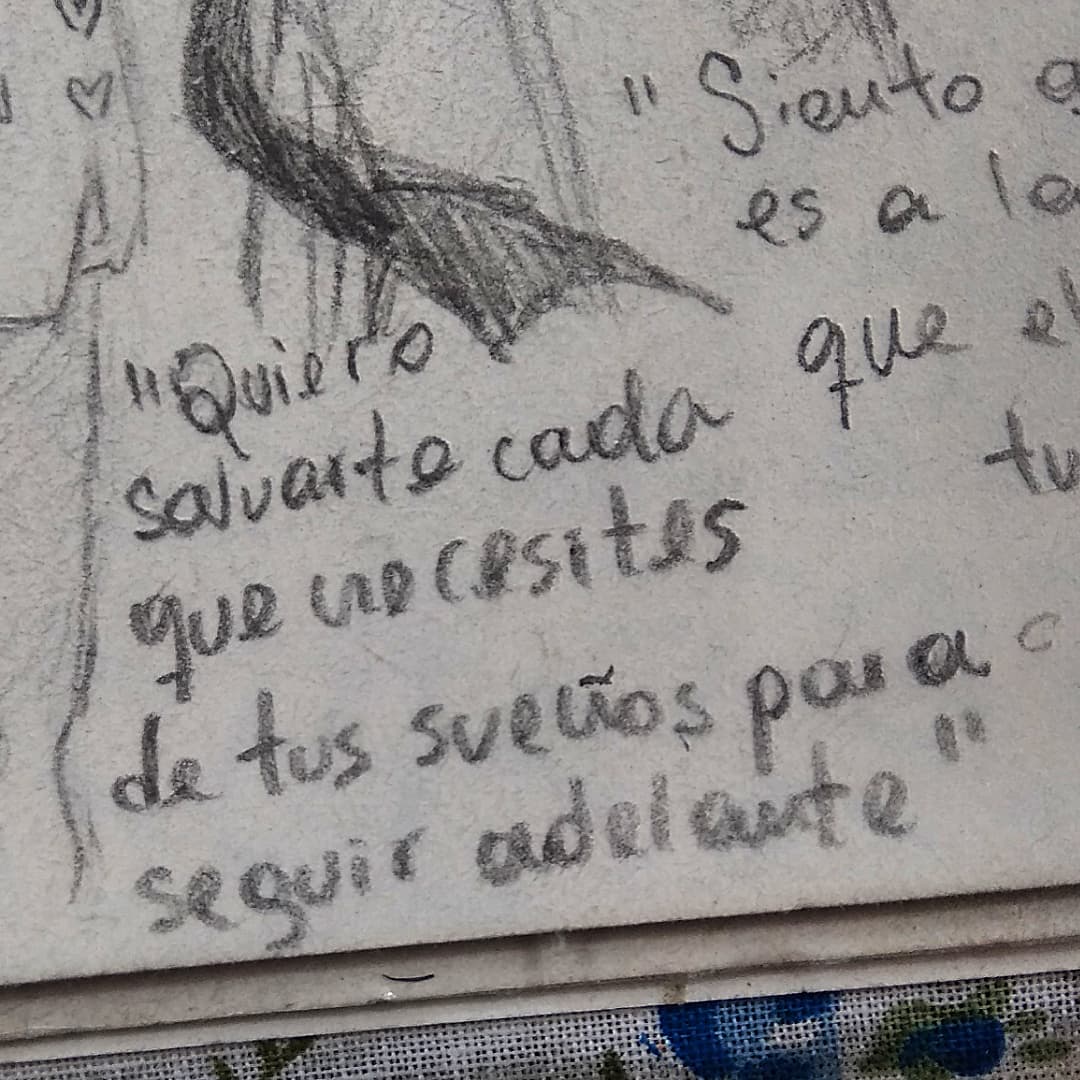 "Quiero
salvarte cada
que necesites
de tus sueños para
seguir adelante"
"Siento
es a
que